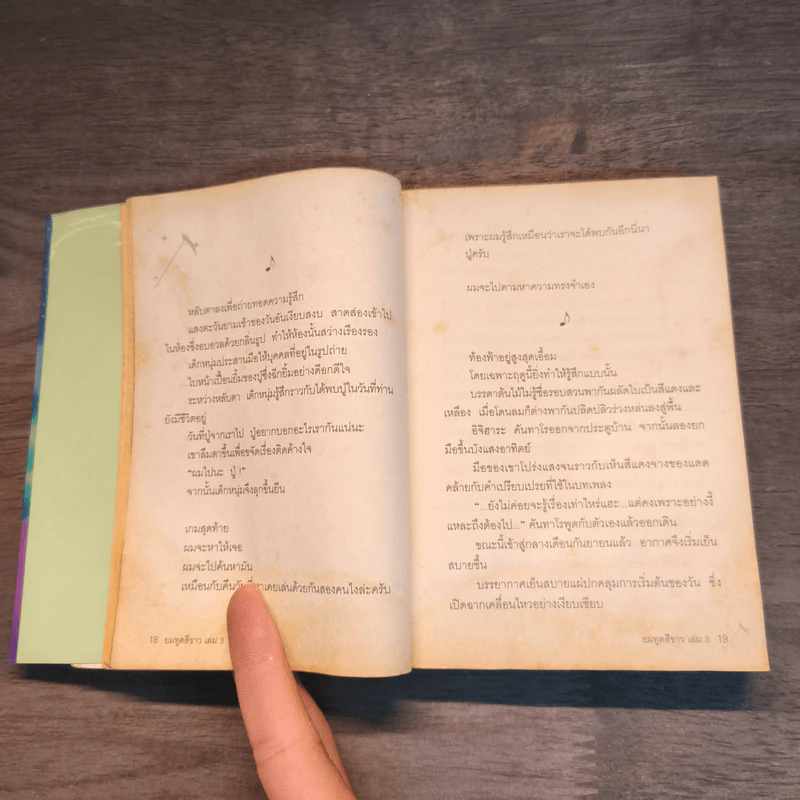 หลับตาลงเพื่อถ่ายทอดความรู้สึก
แสงตะวันยามเช้าของวันอันเงียบสงบ สาดส่องเข้าไป
ในห้องซึ่งอบอวลด้วยกลิ่นธูป ทำให้ห้องนั้นสว่างเรืองรอง
เด็กหนุ่มประสานมือให้บุคคลที่อยู่ในรูปถ่าย
ใบหน้าเปื้อนยิ้มของปู่ซึ่งฉีกยิ้มอย่างดีอกดีใจ
ระหว่างหลับตา เด็กหนุ่มรู้สึกราวกับได้พบปู่ในวันที่ท่าน
ยังมีชีวิตอยู่
วันที่ปู่จากเราไป ปู่อยากบอกอะไรเรากันแน่นะ
เขาลืมตาขึ้นเพื่อขจัดเรื่องติดค้างใจ
“ผมไปนะ ปู่ !”
จากนั้นเด็กหนุ่มจึงลุกขึ้นยืน
เกมสุดท้าย
ผมจะหาให้เจอ
ผมจะไปค้นหามัน
เหมือนกับคืนวันที่เราเคยเล่นด้วยกันสองคนไงล่ะครับ
18 ยมทูตสีขาว เล่ม 3
เพราะผมรู้สึกเหมือนว่าเราจะได้พบกันอีกนี่นา
ปู่ครับ
ผมจะไปตามหาความทรงจำเอง
ท้องฟ้าอยู่สูงสุดเอื้อม
โดยเฉพาะฤดูนี้ยิ่งทำให้รู้สึกแบบนั้น
บรรดาต้นไม้ไม่รู้ชื่อรอบสวนพากันผลัดใบเป็นสีแดงและ
เหลือง เมื่อโดนลมก็ต่างพากันปลิดปลิวร่วงหล่นลงสู่พื้น
อิจิฮาระ คันทาโรออกจากประตูบ้าน จากนั้นลองยก
มือขึ้นบังแสงอาทิตย์
มือของเขาโปร่งแสงจนราวกับเห็นสีแดงจางของแดด
คล้ายกับคำเปรียบเปรยที่ใช้ในบทเพลง
“...ยังไม่ค่อยจะรู้เรื่องเท่าไหร่แฮะ...แต่คงเพราะอย่างงี้
แหละถึงต้องไป...” คันทาโรพูดกับตัวเองแล้วออกเดิน
ขณะนี้เข้าสู่กลางเดือนกันยายนแล้ว อากาศจึงเริ่มเย็น
สบายขึ้น
บรรยากาศเย็นสบายแผ่ปกคลุมการเริ่มต้นของวัน ซึ่ง
เปิดฉากเคลื่อนไหวอย่างเงียบเชียบ
ยมทูตสีขาว เล่ม 3 19